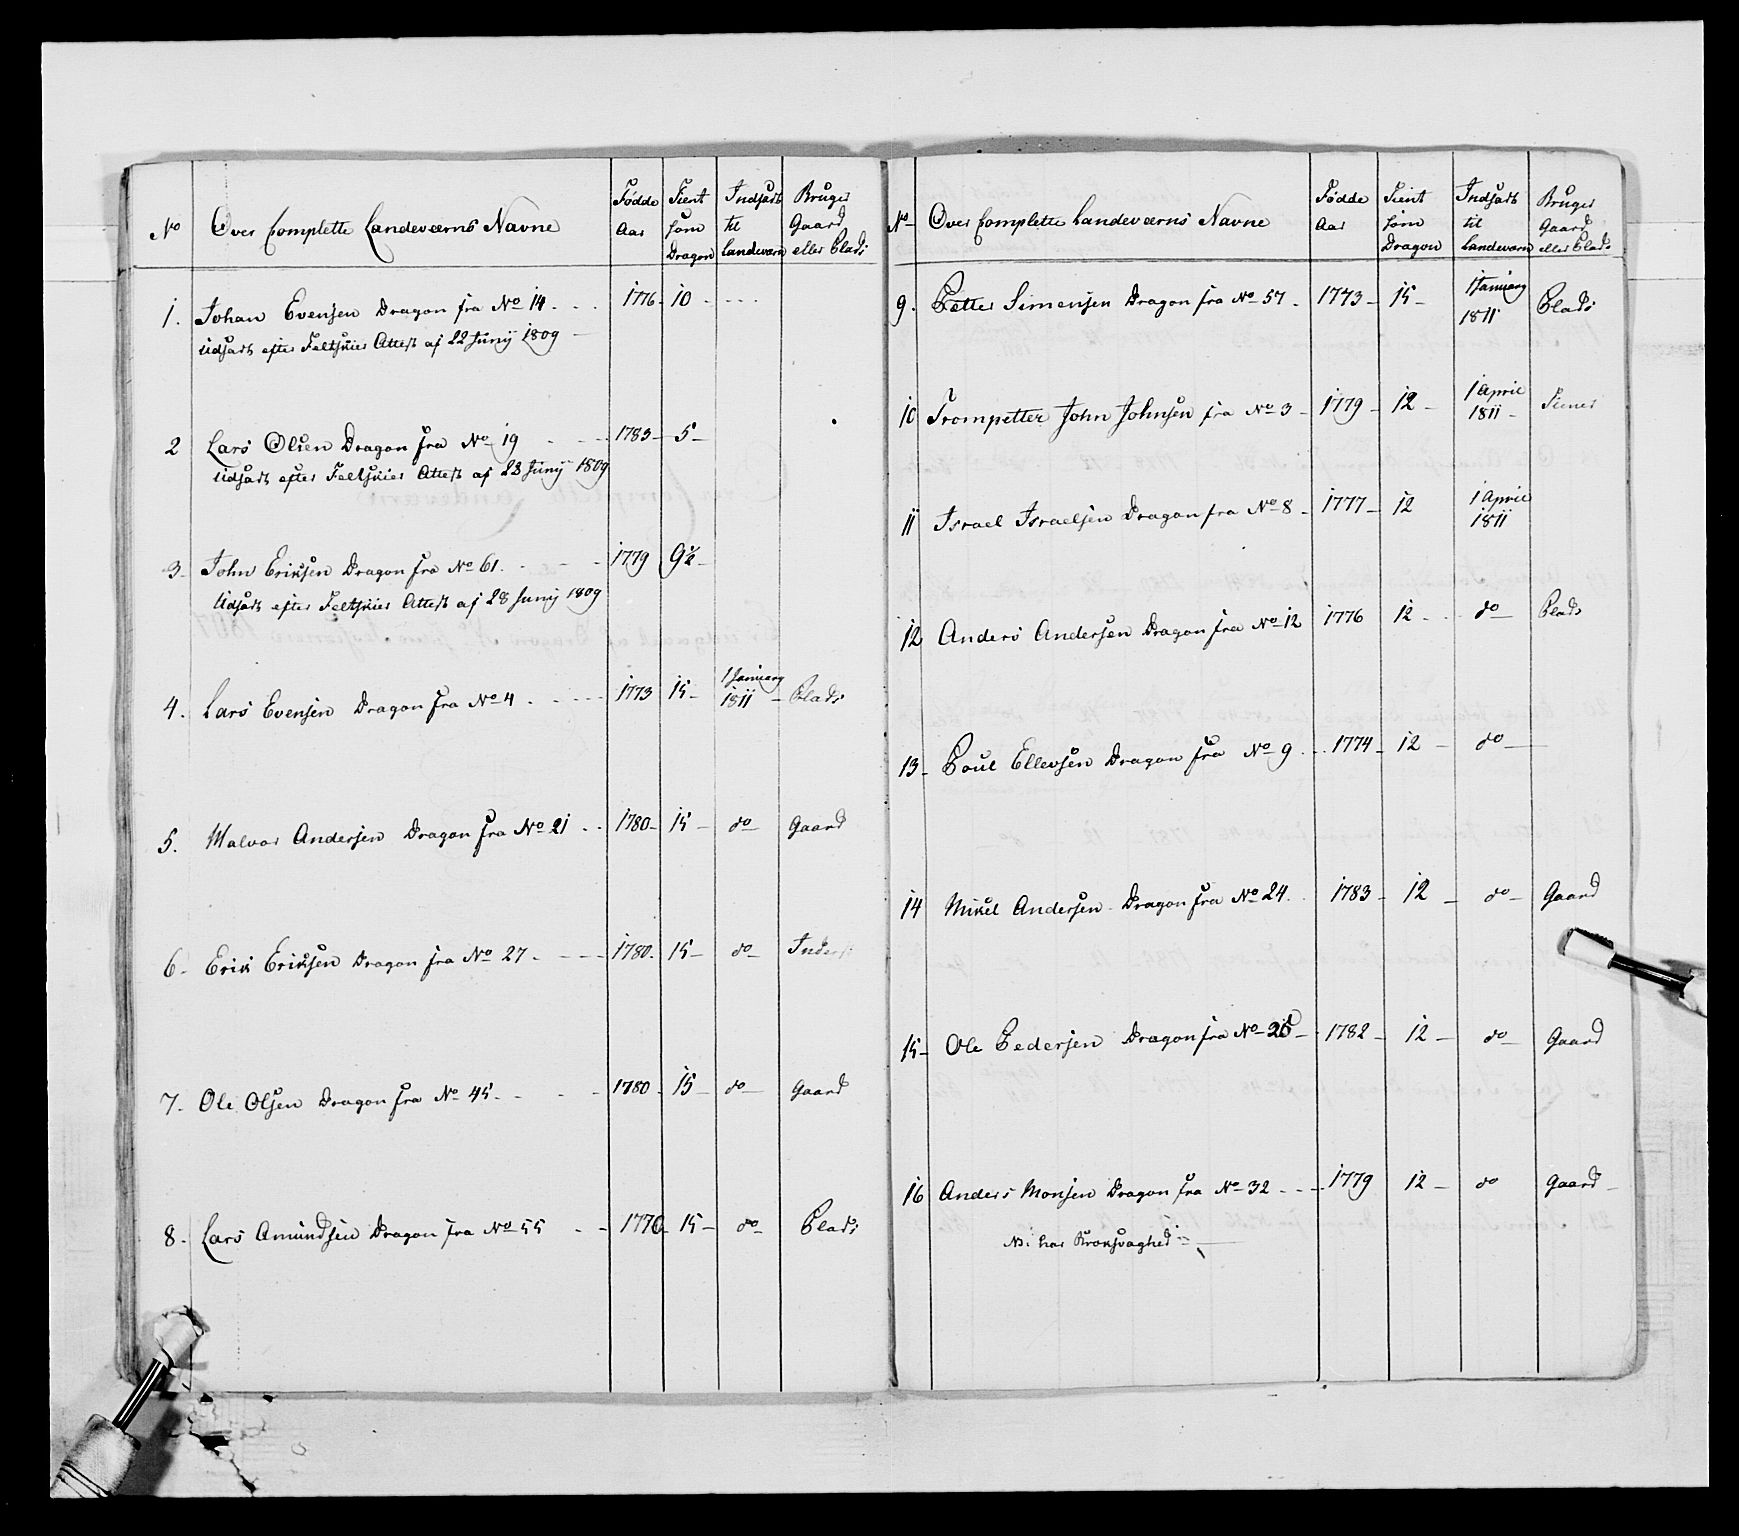 No Over Complette Landeværns Navne Fødde Aar Tient som Dragon Indsadt til Landeværn Bruger Gaard eller Plads
1. Johan Evensen Dragon fra No 14 1776 10
Udsadt efter Feltskiær Attest af 22 Junij 1809
2 Lars Olsen Dragon fra No 19 1783 5
Udsadt efter Feltskiær Attest af 23 Junij 1809
3 John Eriksen Dragon fra No 61 1779 9½
Udsadt efter Feltskiær Attest af 28 Junij 1809
4. Lars Evensen Dragon fra No 4 1773 15 1 Januarij 1811 Plads
5. Halvor Andersen Dragon fra No 21 1780 15 do Gaard
6 Erik Eriksen Dragon fra No 27 1780 15 do
7. Ole Olsen Dragon fra No 45 1780 15 do Gaard
8. Lars Amundsen Dragon fra No 55 1770 15 do Plads
No Over Complette Landeværns Navne Fødde Aar Tient som Dragon Indsadt til Landeværn Bruger Gaard eller Plads
9. Petter Simensen Dragon fra No 57 1773 15 1 Januarij 1811 Plads
10 Trompetter John Johnsen fra No 3 1779 12 1 April 1811 Tiener
11 Israel Israelsen Dragon fra No 8 1777 12 1 April 1811
12 Anders Andersen Dragon fra No 12 1776 12 do Plads
13 Poul Ellevsen Dragon fra No 9 1774 12 do
14 Mikel Andersen Dragon fra No 24 1783 12 do Gaard
15 Ole Pedersen Dragon fra No 1782 12 do Gaard
16 Anders Monsen Dragon fra No 32 1779 12 do Gaard
NB: har Kroksvaghed